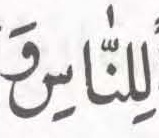 لِلنَّاسِ وَ